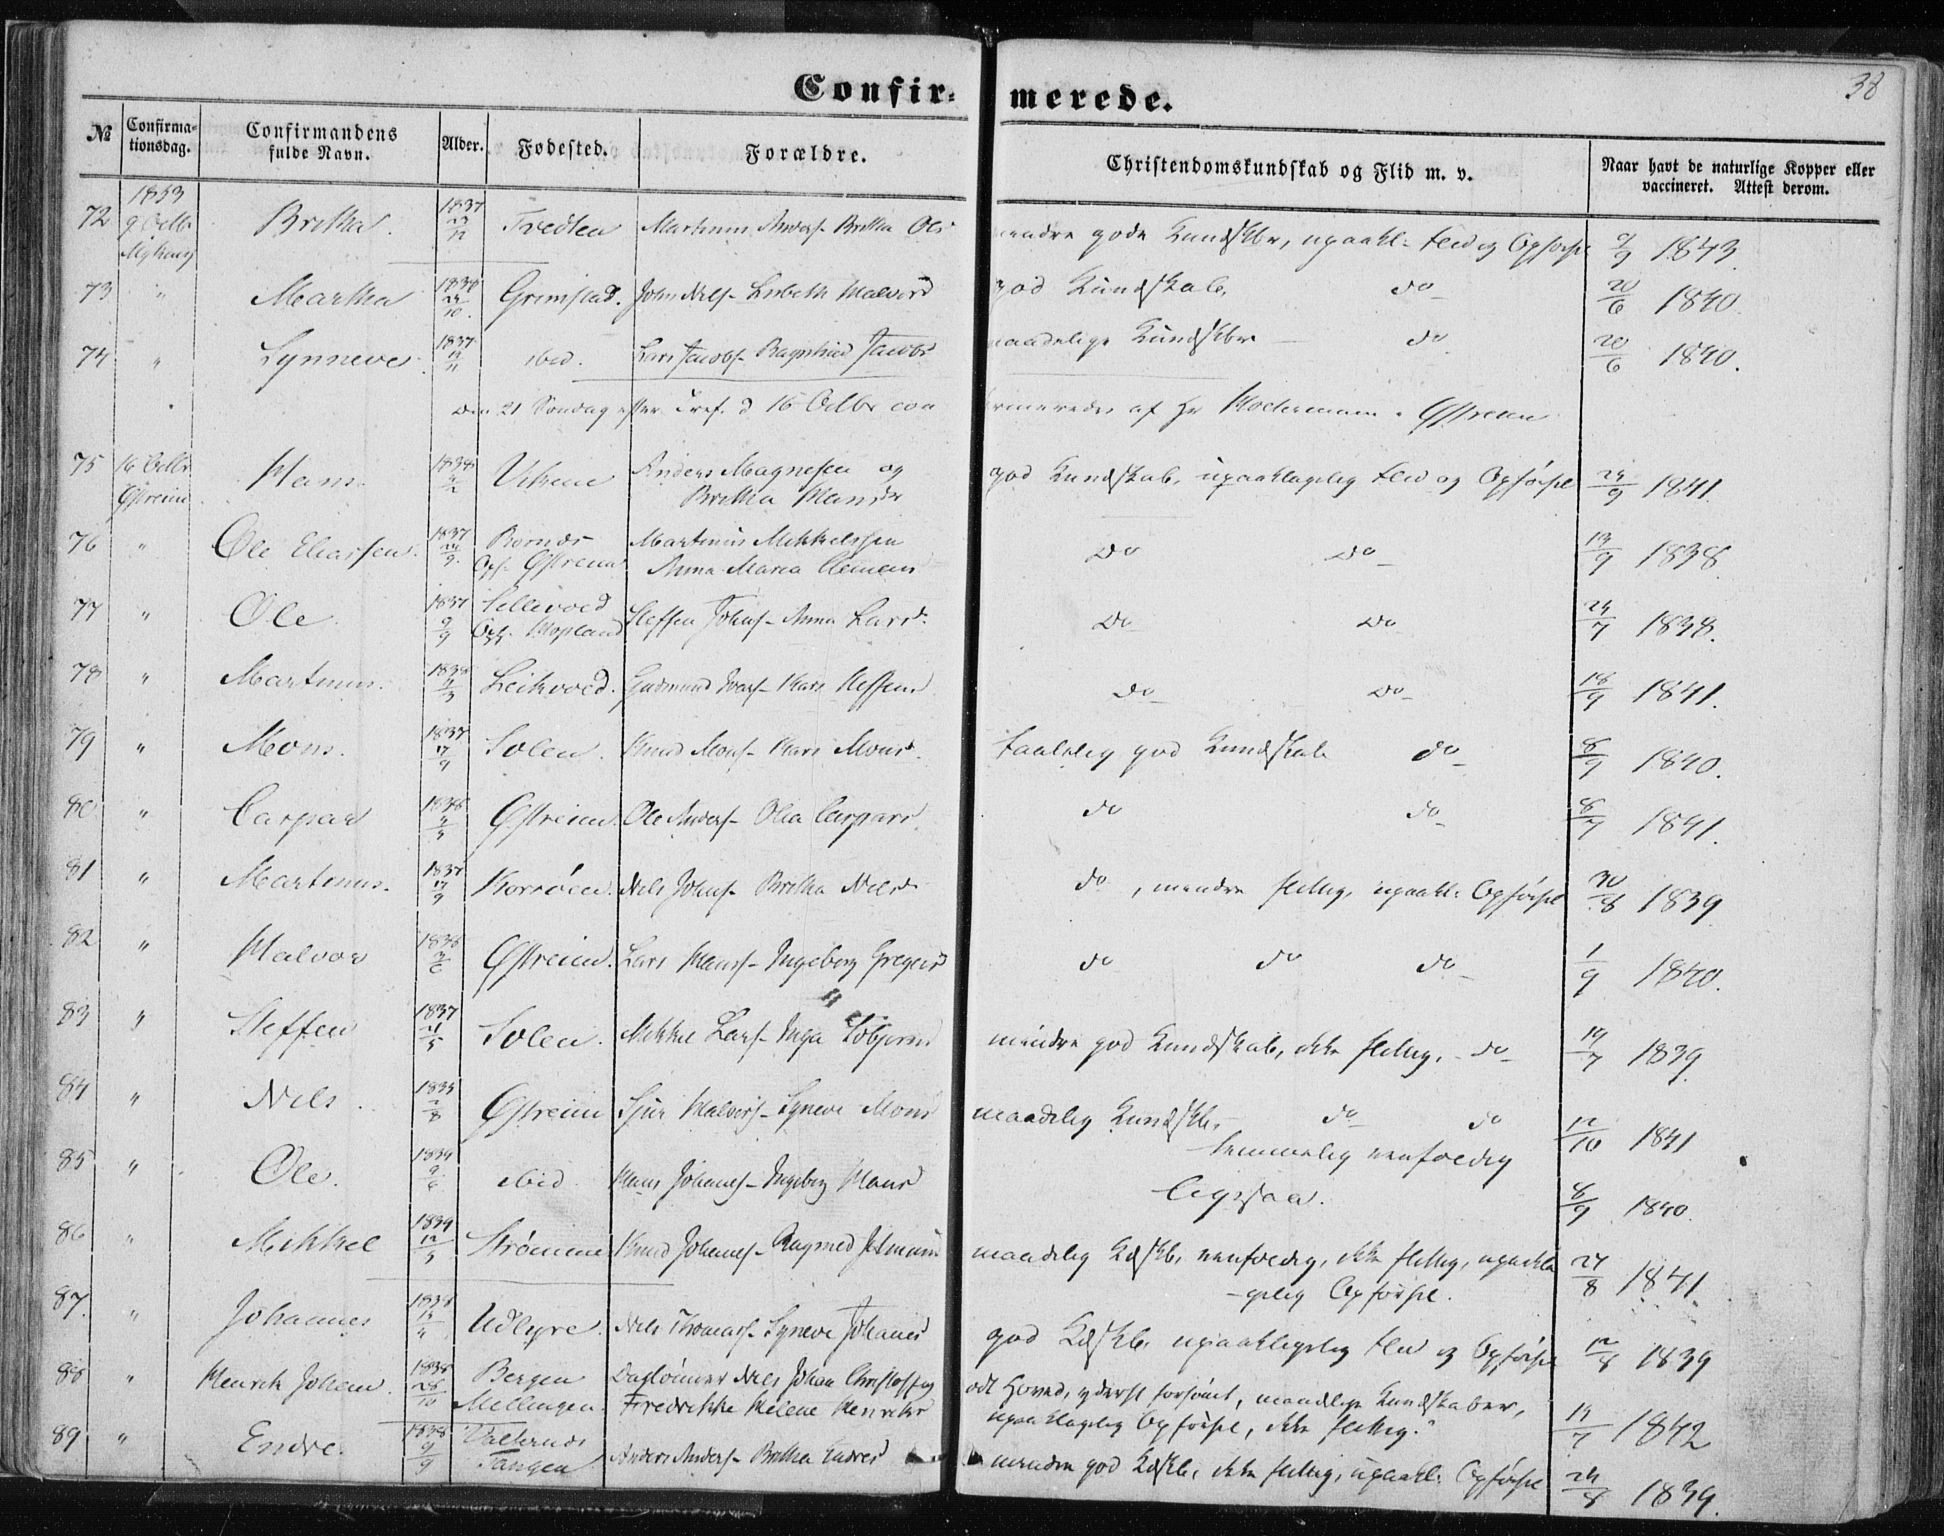 38
Confir-merede.
№ Confirma-tionsdag. Confirmandens fulde Navn. Alder. Fødested. Forældre. Christendomskundskab og Flid m. v. Naar havt de naturlige Kopper eller vaccineret. Attest derom.
72 1853 9 Octbr Myking Britha. 1837 Fredlen Martinus Anders- Britha Ols mindre gode Kundskbr, upaakl- Flid og Opførsel 9/9 1843.
73 " Martha 1838 10 Grimstad. John Nils- Lisbeth Halvors god Kundskab, do 20/6 1840.
74 " Synneve 1837 11 ibid. Lars Jacobs- Ragnhild Jacobs maadelige Kundskbr do 20/6 1840.
den 21 Søndag efter Tref. d 16 Octbr con
firmeredes af Hr i Østreim
75 16 Octbr Østreim Hans 1838 Anders Magnesen og Britha Hansdr god Kundskab, upaaklagelig Flid og Opførsel 24/9 1841.
76 " Ole Eliassen. 1837 9 Opf. Østreim Martinus Mikkelssen Anna Maria Clemens do do 13/9 1838.
77 " Ole. 1837 9/9 Sellevold Opf. Hopland Steffen Johns- Anna Larsdr do do 24/7 1838.
78 " Martinus. 1838 Leikvold. Gudmund Ivers- Kari Steffens do do 18/9 1841.
79 " Mons. 1837 17/9 Solem. Knud Mons- Kari Monsdr. taalelig god Kundskab do 8/9 1840.
80 " Caspar 1838 Østreim. Ole Anders- Olia Caspars do do 8/7 1841.
81 " Martinus. 1837 17/9 Korsøen. Nils Johns- Britha Nilsdr do, mindre flittig, upaakl. Opførsel 30/8 1839
82 " Halvor 1838 6 Østreim. Lars Hans- Ingeborg Gregers do do do 1/9 1840.
83 " Steffen 1837 5 Solem. Mikkel Lars- Inga mindre god Kundskab, ikke flittig, do 19/7 1839.
84 " Nils. 8 Østreim Sjur Halvors- Syneve Mons maadelig Kundskb. do do 12/10 1841
temmelig eenfoldig
85 " Ole. ibid. Hans Johannes- Ingeborg Hans ligesaa. 8/9 1840.
86 " Mikkel 12 Strømme Knud Johannes- maadelig Kdskb, eenfoldig, ikke flittig, upaakla
-gelig Opførsel. 27/8 1841.
87. " Johannes 1838 Udlyre. Nils Thomas- Syneve Johannes god Kdskb. upaaklagelig Flid og Opførsel 12/8 1839
88 " Henrik Johan. 1838 28/10 Bergen Mellingen. Daglønner Nils Johan Fredrikke Helene Henriks
Hoved, yderst forsømt, maadelige Kundskaber,
upaaklagelig Opførsel, ikke flittig." 14/7 1842
89 " Endre. 1838 9/9 Tangen Anders Anders- Britha Endres mindre god Kdskb, ikke flittig, upaakl. Opførsel 24/8 1839.